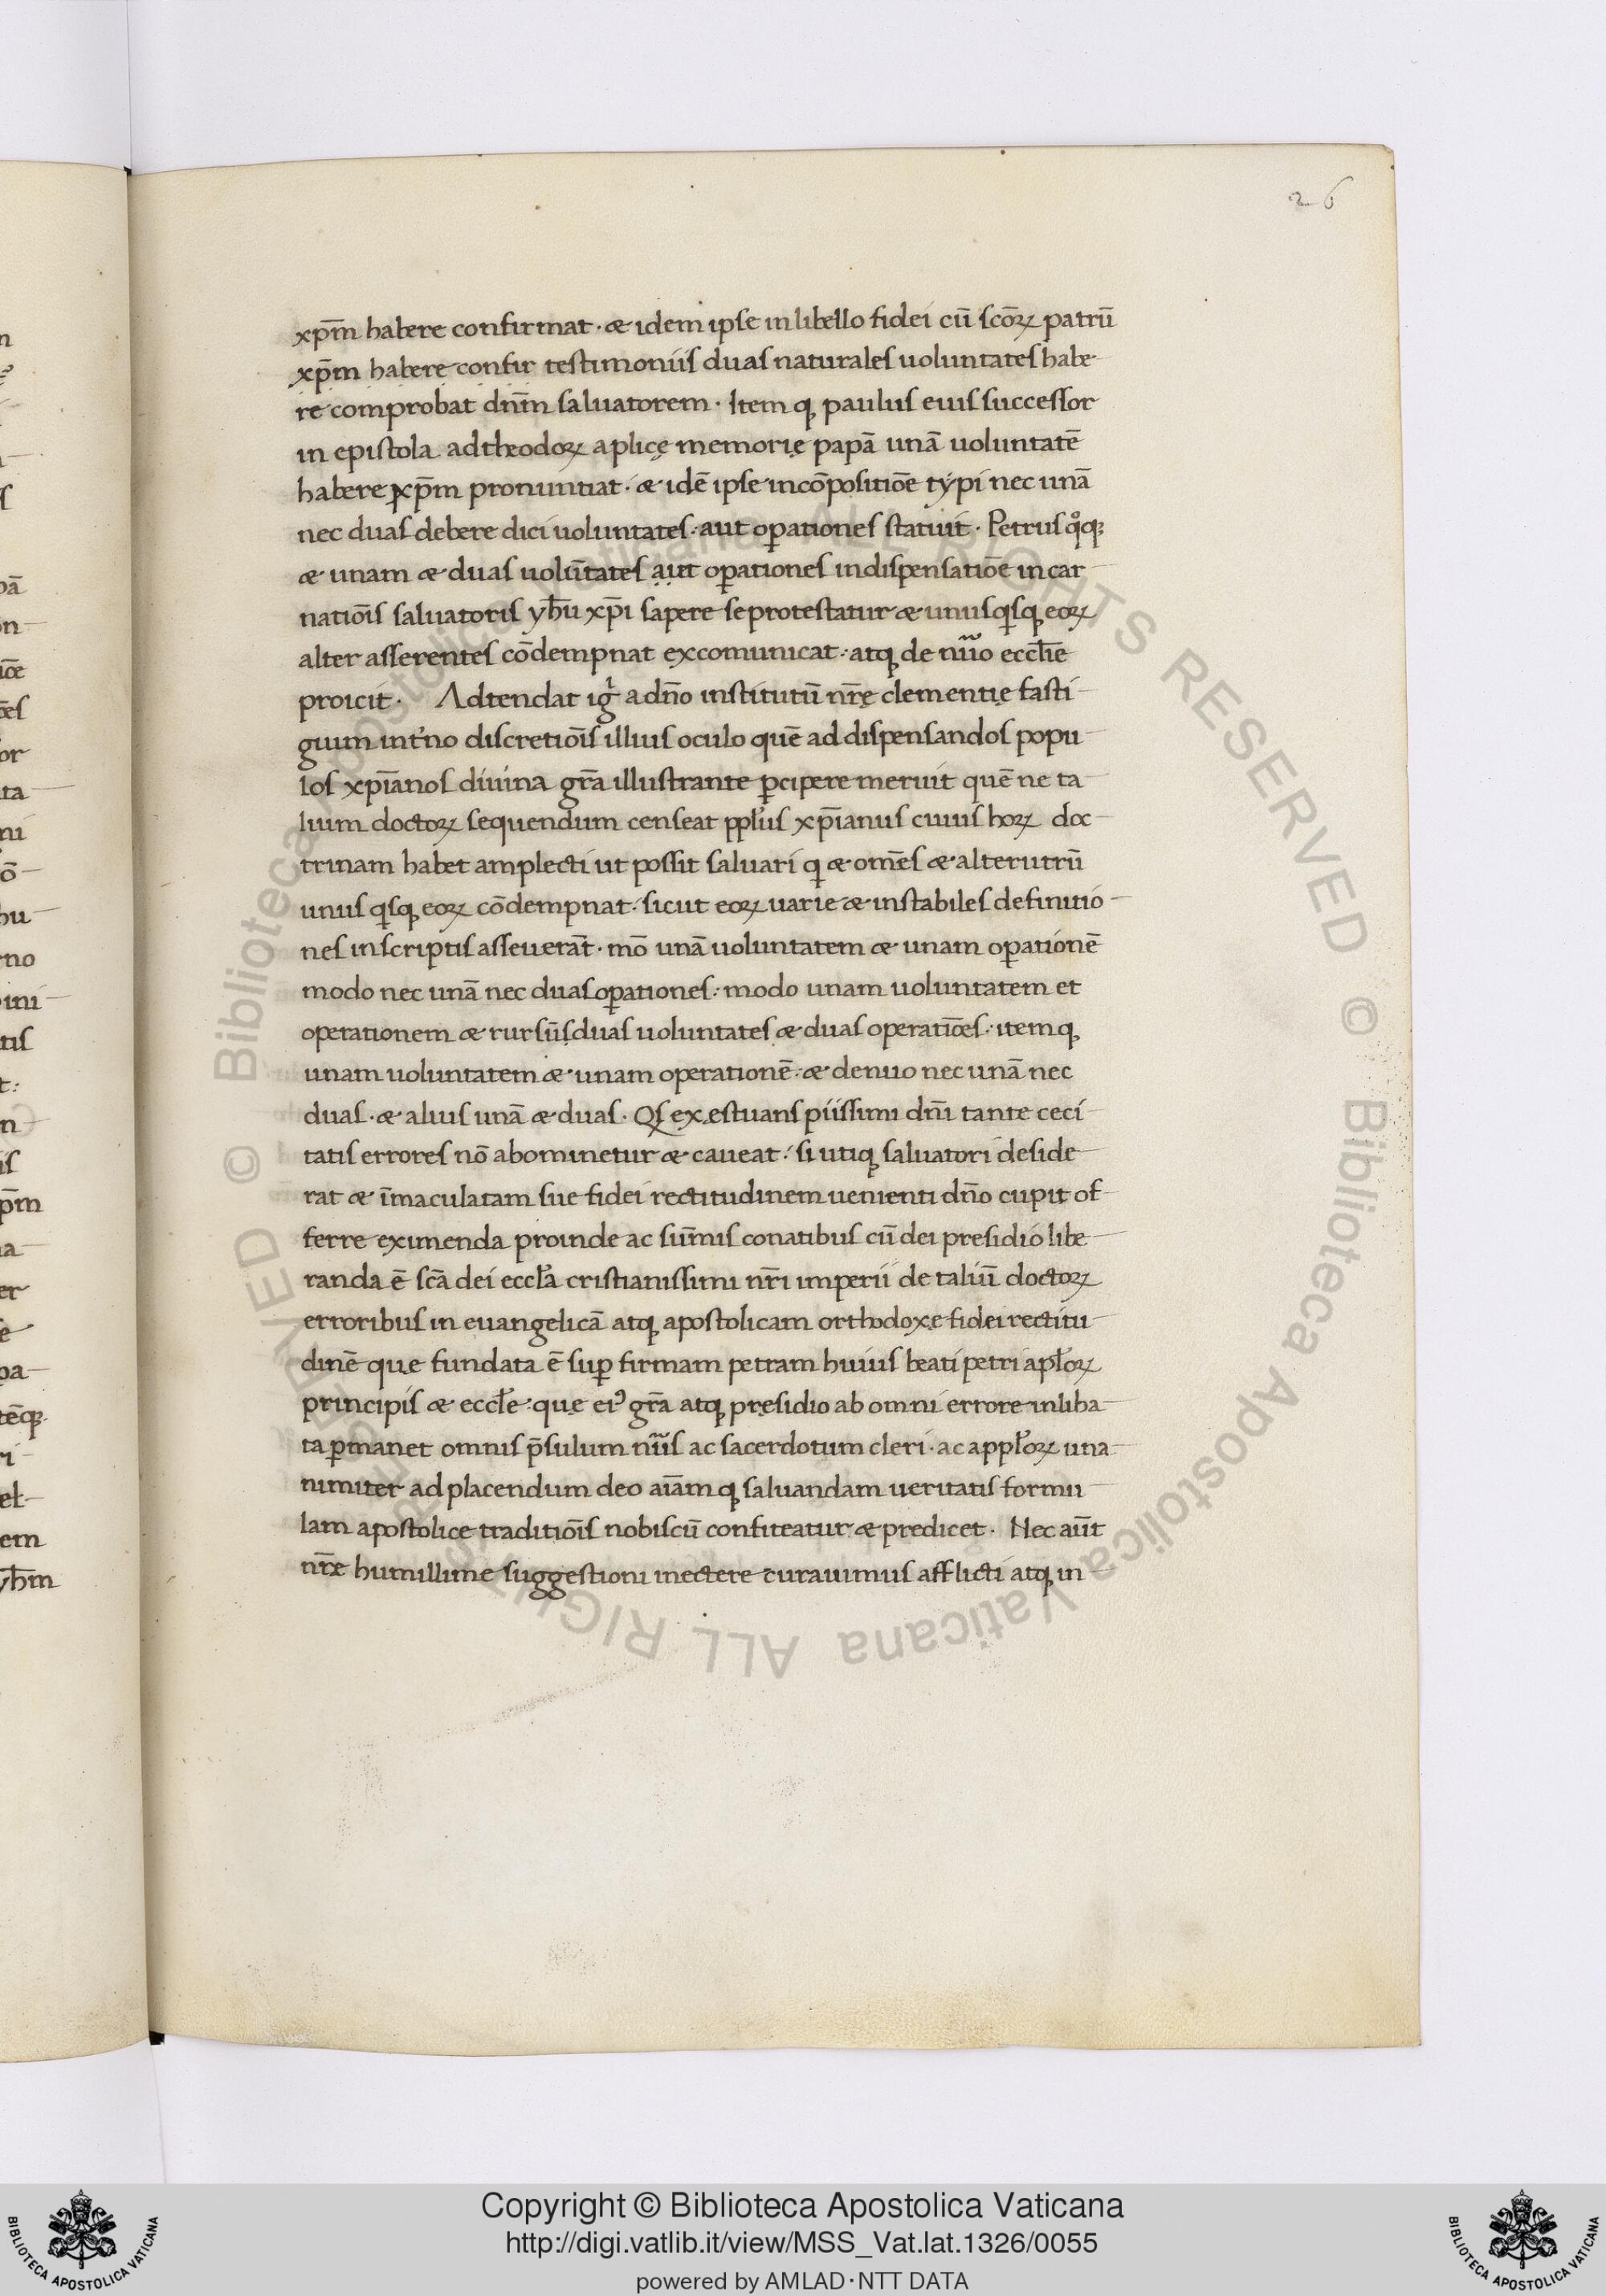 26
xp̄m habere confirmat · æ idem ipse in libello fidei cū scōꝝ patrū
xp̄m habere confir testimoniis duas naturales uoluntates habe-
re comprobat dn̄m saluatorem · Item q; paulus eius successor
in epistola ad theodoꝝ aplicę memorię papā unā uoluntatē
habere xp̄m pronuntiat · æ idē ipse in cōpositiōe typi nec unā
nec duas debere dici uoluntates · aut oꝑationes statuit · Petrus qͦq;
æ unam æ duas uolūtates aut oꝑationes in dispensatiōe incar-
natiōis saluatoris yh̄u xp̄i sapere se protestatur æ unusqisq; eoꝝ
alter asserentes cōdempnat excomunicat · atq; de nūo eccl̄ie
proicit · Adtendat ig̍ a dn̄o institutū nr̄ę clementię fasti-
gium int̄no discretiōis illius oculo quē ad dispensandos popu-
los xp̄ianos diuina gr̄a illustrante ꝑcipere meruit quē ne ta-
lium doctoꝝ sequendum censeat ppl̄us xp̄ianus cuius hoꝝ doc-
trinam habet amplecti ut possit saluari q æ omēs æ alterutrū
unus qisq; eoꝝ cōdempnat · sicut eoꝝ uarie æ instabiles definitio-
nes in scriptis asseuerāt · mō unā uoluntatem æ unam oꝑationē
modo nec unā nec duas oꝑationes : modo unam uoluntatem et
operationem æ rursūs duas uoluntates æ duas operatiōes · item q;
unam uoluntatem æ unam operationē · æ denuo nec unā nec
duas · æ alius unā æ duas · Qs exestuans piissimi dn̄i tante ceci-
tatis errores nō abominetur æ caueat · si utiq; saluatori deside-
rat æ īmaculatam sue fidei rectitudinem uenienti dn̄o cupit of-
ferre eximenda proinde ac sūmis conatibus cū dei presidio libe-
randa ē scā dei eccl̄a cristianissimi nr̄i imperii de taliū doctoꝝ
erroribus in euangelicā atq; apostolicam orthodoxe fidei rectitu-
dinē que fundata ē suꝑ firmam petram huius beati petri apl̄oꝝ
principis æ eccl̄e · quę eiꝰ gr̄a atq; pręsidio ab omni errore inliba-
ta ꝑmanet omnis p̄sulum nūs ac sacerdotum cleri · ac appl̄oꝝ una-
nimiter ad placendum deo aīam q; saluandam ueritatis formu-
lam apostolice traditiōis nobiscū confiteatur æ predicet · Nec aūt
nr̄ę humillime suggestioni inectere curauimus afflicti atq; in-
Copyright © Biblioteca Apostolica Vaticana
http://digi.vatlib.it/view/MSS_Vat.lat.1326/0055
powered by AMLAD·NTT DATA